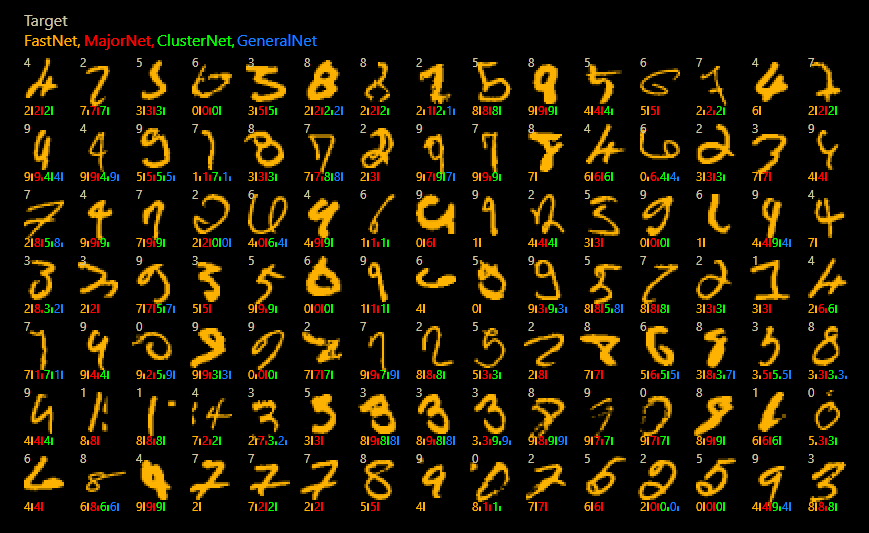 Target
FastNet, MajorNet, ClusterNet, GeneralNet
4 2 5 6 3 8 8 2 5 8 5 6 7 4 7
2|2|2| 7|7|7| 3|3|3| 0|0|0| 3|5|5| 2|2|2|2| 2|2|2| 2|1|2|1| 8|8|8| 9|9|9| 4|4|4| 5|5| 2|2|2| 6| 2|2|2|
9 4 9 1 8 7 2 9 7 8 4 6 2 3 9
9|9|4|4| 9|9|4|9| 5|5|5|5| 1|1|7|1| 3|3|3| 7|7|8|8| 2|3| 9|7|9|7| 9|9|9| 7| 6|6|6| 0|6|4|4| 3|3|3| 7|7| 4|4|
7 4 7 2 6 4 6 9 9 2 5 9 6 9 4
2|8|5|8| 9|9|9| 7|9|9| 2|2|0|0| 4|0|6|4| 4|9|9| 1|1|1| 0|6| 1| 4|4|4| 3|3| 0|0|0| 1| 4|4|9|4| 7|
3 3 9 3 5 6 9 6 8 9 5 7 2 1 4
2|8|3|2| 2|2| 7|7|5|7| 5|5| 9|9|9| 0|0|0| 1|1|1| 4| 0| 9|3|9|3| 8|8|5|8| 8|8|8| 3|3|3| 3|3| 2|6|6|
7 9 0 9 9 2 7 2 5 2 8 6 8 3 8
7|1|7|1| 9|4|4| 9|2|5|9| 9|9|3|3| 0|0|0| 7|7|7| 9|9|7|9| 8|8|8| 5|3|3| 2|8| 7|7| 5|6|5|5| 3|8|3|7| 3|5|5|5| 3|3|3|3|
9 1 1 4 3 5 3 3 3 8 9 0 8 1 0
4|4|4| 8|8| 8|8|8| 7|2|2| 2|7|3|2| 3|3| 8|9|8|8| 8|9|8|8| 3|3|9|9| 9|8|9|9| 9|7|7| 9|7|7| 8|9|9| 6|6|6| 5|3|3|
6 8 4 7 7 7 8 9 0 2 6 2 5 9 3
4|4| 6|8|6|6| 9|9|9| 2| 7|2|2| 2|2| 5|5| 4| 8|1|1| 7|7| 6|6| 2|0|0|0| 0|0|0| 4|4|9|4| 8|8|8|